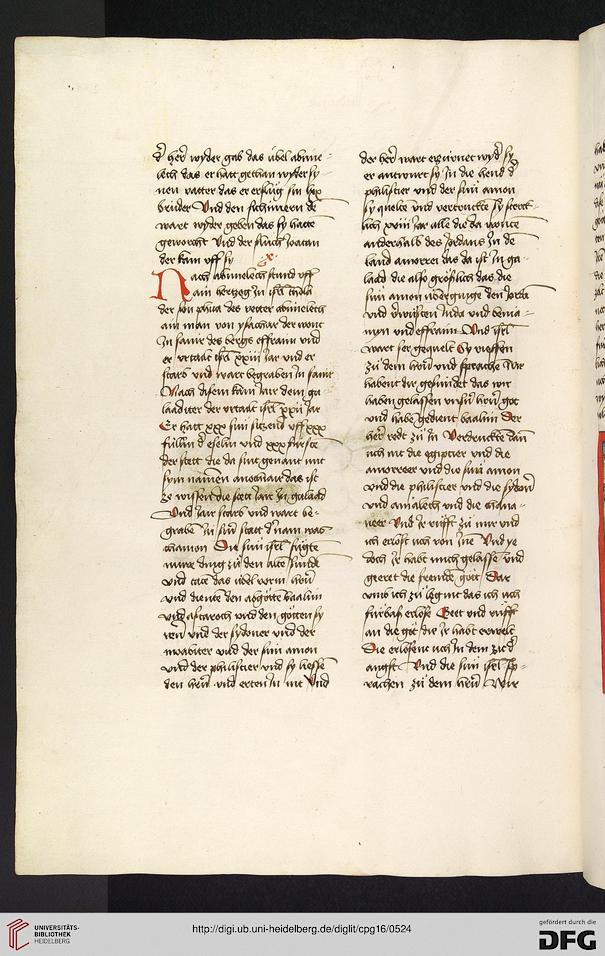 der her wyder gab das übel abime-
lech das er hatt gethan wyder sy-
nen vatter das er erslüg sin lxx
brüder Vnd den sichimern de
wart wyder geben das sy hatte
geworcht Vnd der flüch Joatan
der kam vff sy
x
Nach abimelech stund vff
ain hertzog in isrl thola
der sün phua des vetter abimelech
ain man von ysachar der wont
in samir des bergs effraim vnd
er vrtailt isrl xxiii Jar vnd er
starb vnd wart begraben in samir
Nach disem kam Jair dem ga
laaditer der vrtailt isrl xxii Jar
Er hatt xxx sün sitzend vff xxx
füllin der eselin vnd xxx fürste
der stett die da sint genant mit
sym namen anothiair das ist
ze wissen die stett Jair zu galaad
Vnd Jair starb vnd wart be-
graben in sin statt der nam was
chamon Die sün isrl fügte
nüwe ding zu den alten sünde
vnd tatt das übel vorm hern
vnd dienten den abgötte baalim
vnd astaroth vnd den götten sy
rien vnd der sydoner vnd der
moabiter vnd der sün amon
vnd der philistier vnd sy liessen
den hern vnd erten in nit Vnd
der her wart erzürnet wyder sy
er antwurt sy in die hend der
philistier vnd der sün amon
sy quelte vnd vertrückte sy streck-
lich xviii Jar alle die da wonte
anderhalb des Jordans in de
land amorrei das da ist in ga-
laad die also größlich das die
sün amon übergiuge den Jordan
vnd verwüsten Juda vnd benia-
myn vnd effraim Vnd isrl
wart ser gequelt Sy rieffen
zu dem hern vnd sprache Wir
habent dir gesündet das wir
haben gelassen vnsern hern got
vnd habe gedient baalim Der
her redt zu in Vertruckte dan
uch nit die egiptier vnd die
amorreer vnd die sün amon
vnd die philistier vnd die sydoni
vnd amalech vnd die chana-
neer Vnd ir rüfft zu mir vnd
ich erlöst uch von ine Vnd ye
doch ir habt mich gelasse vnd
geeret die fremde gött Dar
vmb ich zu leg nit das ich uch
fürbas erlöse Geet vnd rüfft
an die göt die ir habt erwelt
Die erlösent uch in dem zit der
angst Vnd die sün isrl sp-
rachen zu dem hern Wir
UNIVERSITÄTS-
BIBLIOTHEK
HEIDELBERG
http://digi.ub.uni-heidelberg.de/diglit/cpg16/0524
gefördert durch die
DFG